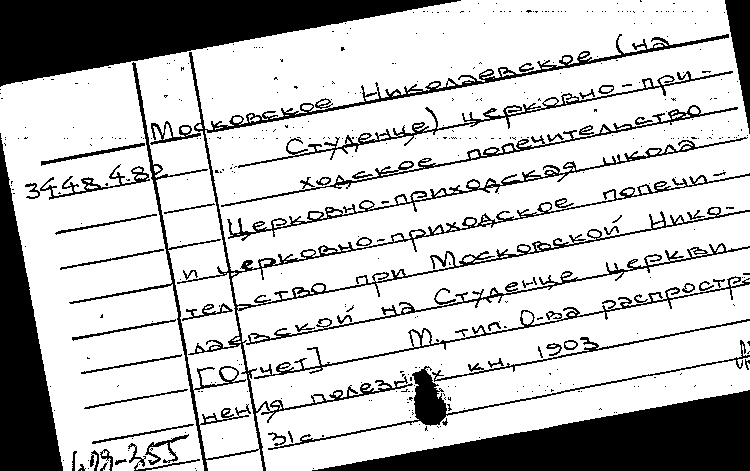 Московское Николаевское (на
Студенце) церковно-при-
34.48.4.82
ходское попечительство
Церковно-приходская школа
и церковно-приходское попечи-
тельство при Московской Нико-
лаевской на Студенце церкви
[Отчет]. М., тип. О-ва распростра-
нения полезных кн., 1903
31с.